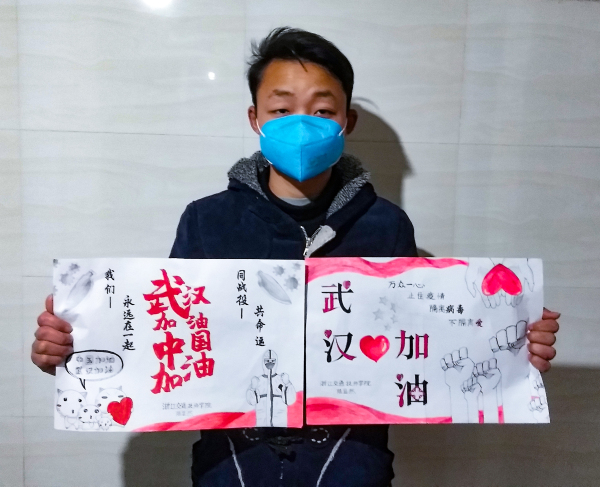 我们—
永远在一起
武汉
加油
中国
加油
同战役—
共命运
加油
加油
浙江交通技师学院
万众一心
疫情
隔离病毒
不隔离爱
武
汉
加
油
浙江交通技师学院